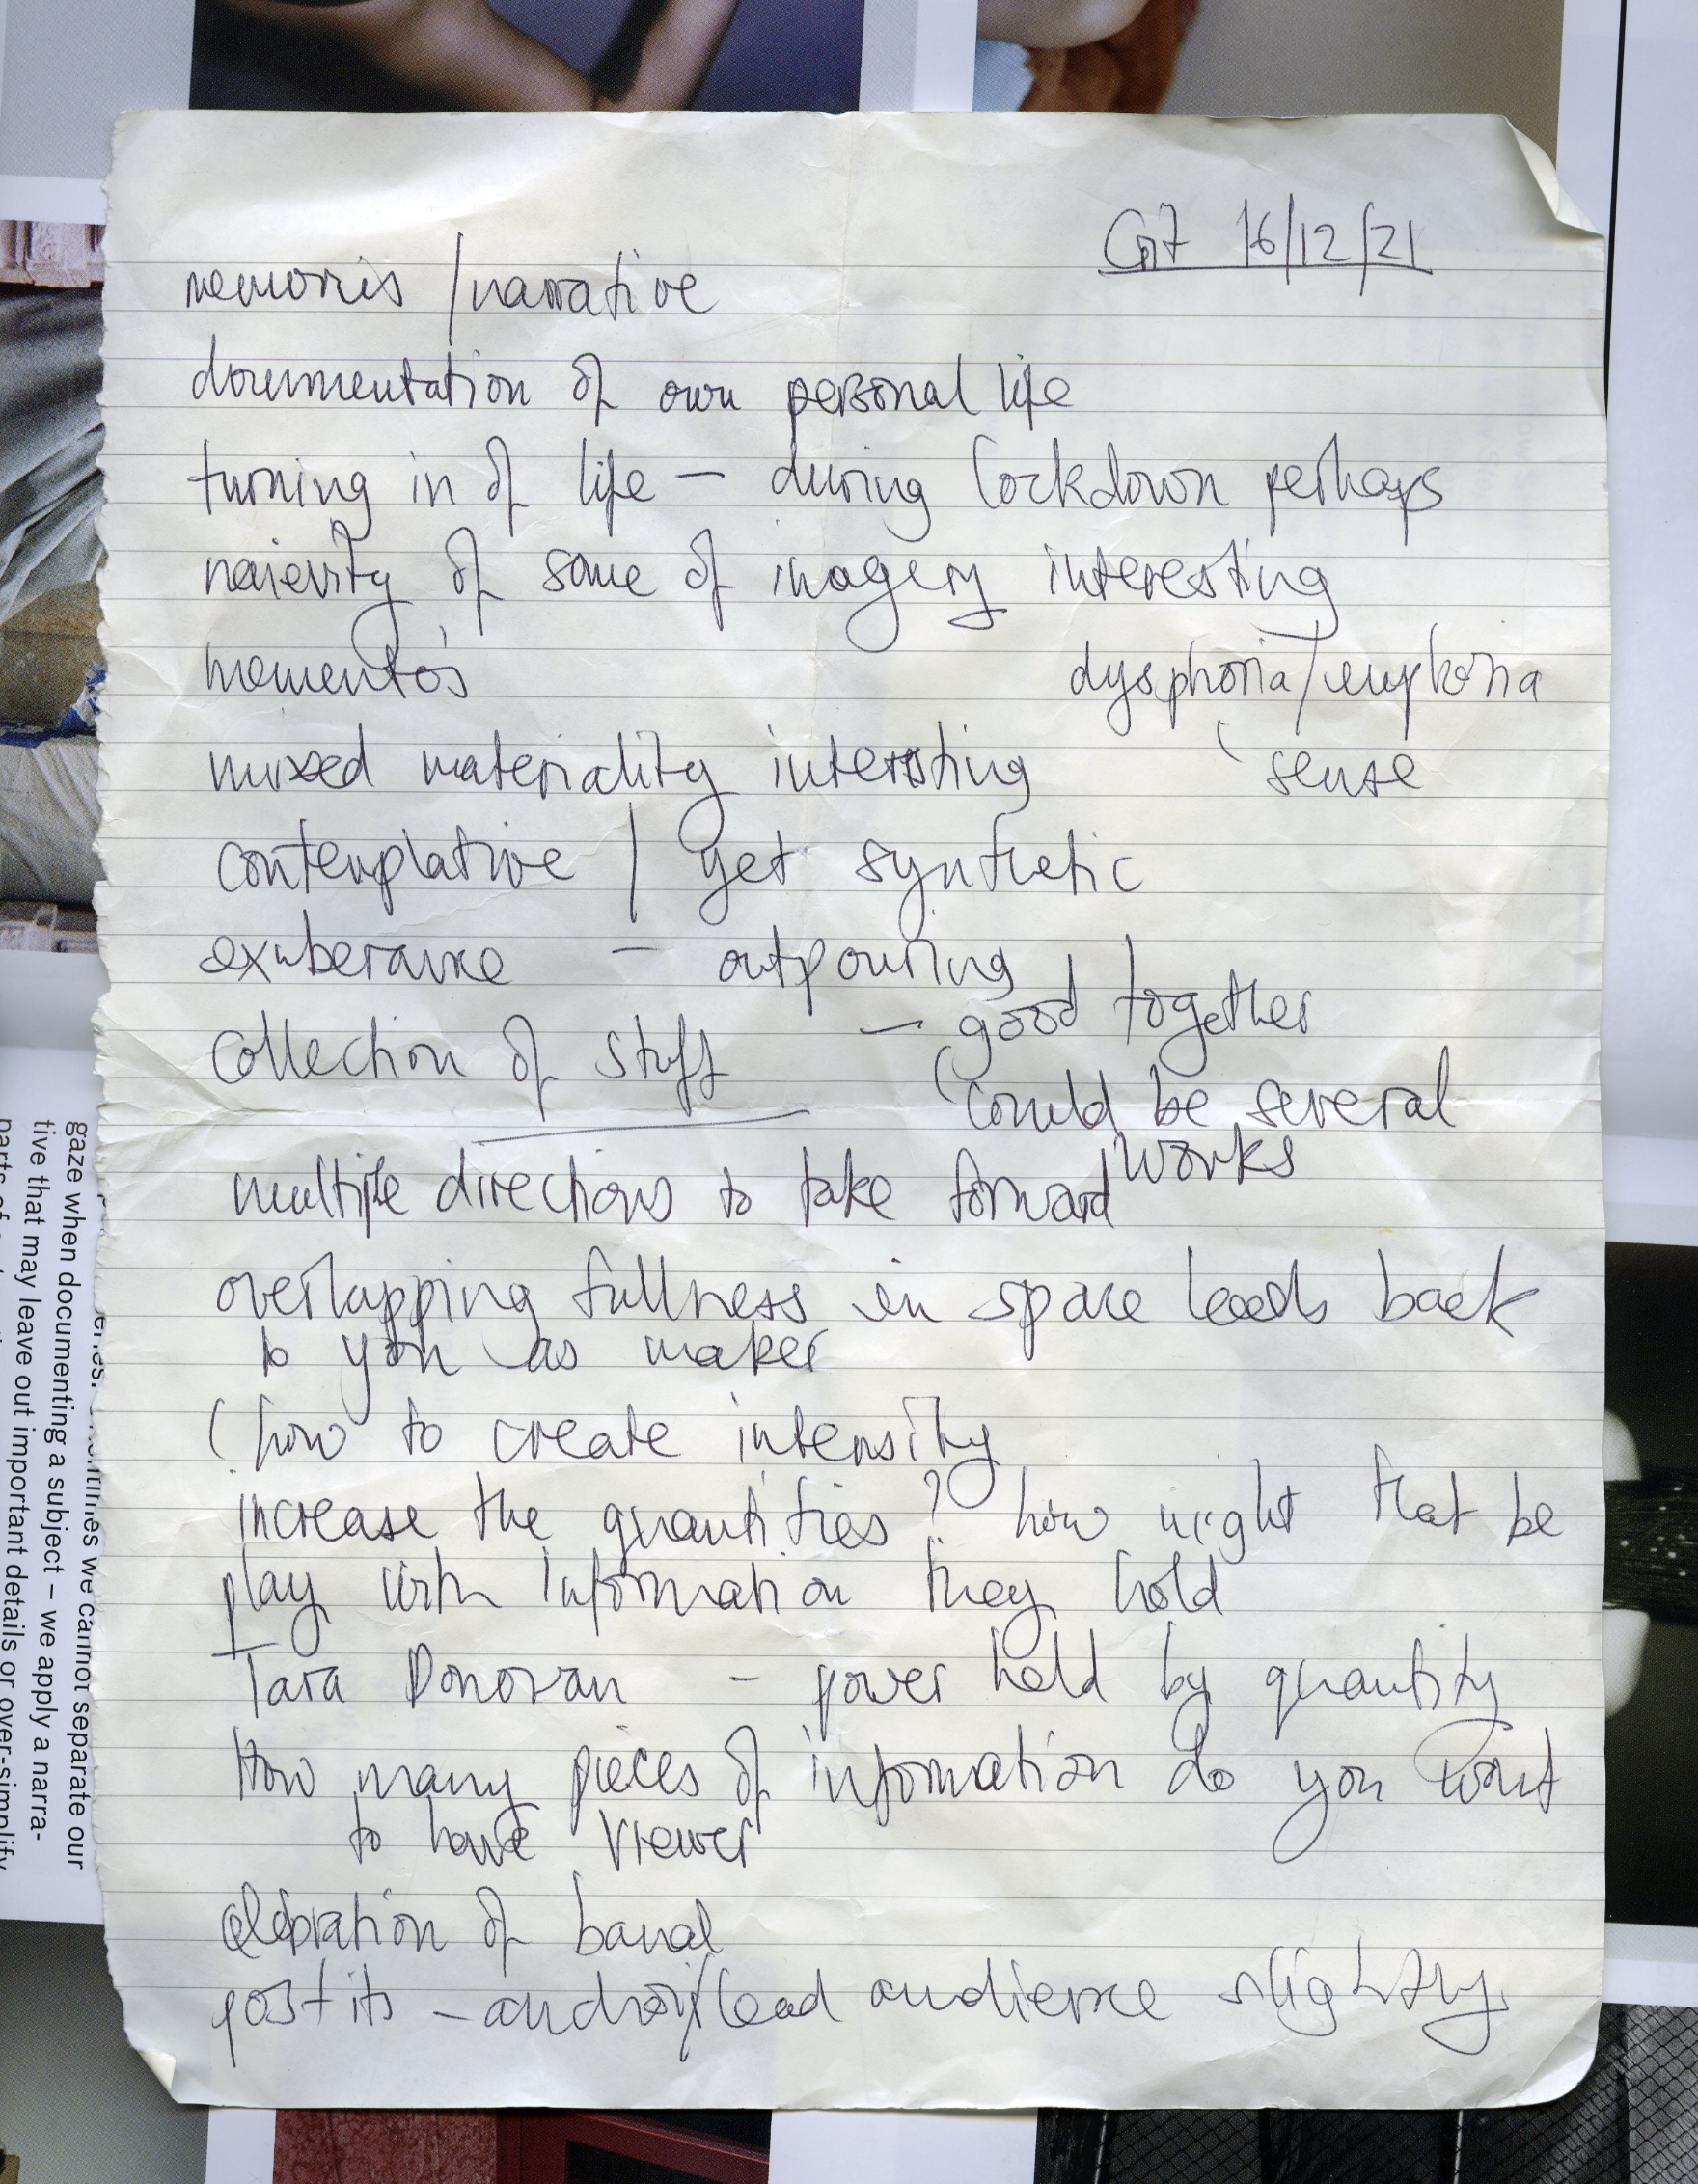 Crit 16/12/21
memories / narrative
documentation of own personal life
turning in of life – during lockdown perhaps
naievity of some of imagery interesting
memento's
dysphoria/euphoria
mixed materiality interesting
sense
contemplative / yet synthetic
exuberance – outpouring
– good together
collection of stuff
could be several
works
multiple directions to take forward
overlapping fullness in space leads back
to you as maker
( how to create intensity
increase the quantities? how might that be
play with information they hold
Tara Donovan – power held by quantity
How many pieces of information do you want
to have viewer
celebration of banal
post its – /lead audience slightly
we cannot separate our
gaze when documenting a subject – we apply a narra-
tive that may leave out important details or over-simplify